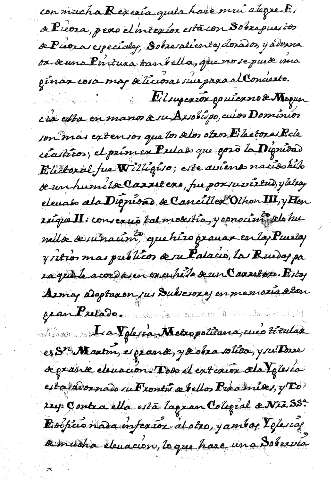 con mucha Rexería que la hase mui alegre. Es
de Piedra, pero el interior está con Sobrepuestos
de Piedras especiales, Sobresalientes, dorados, y adorna
da de una Pintura tan bella, que no se puede ima
ginar cosa mas deliciosa ni para el Concepto.
El superiór govierno de Magun
cia está en mano de su Arsobispo, cuios Dominios
son mas extensos que los de los otros Electores Ecle
ciasticos; el primer Prelado que gosó la Dignidad
Elěctoral fue Williguiso; este aviendo nacido hijo
de un humilde Carretero, fue por su virtud, y letras
elevado a la Dignidad de Canciller de Othon III, y Hen
rique II: conservó tal modestia, y conocim.to de la hu
mildad de su nacim.to, que hizo gravar en las Puertas
y sitios mas publicos de su Palacio, las Ruedas pa
ra que le acordasen era hijo de un Carretero. Estas
Armas adoptaron sus Subcesores en memoria de tan
gran Prelado.
La Yglesia Metropolitana, cuio titular
es S.n Martin, es grande, y de obra solida, y su Torre
de grande elevacion. Todo el exterior de la Yglesia
esta adornado su Frontis de bellos Piramides, y To
rres. Contra ella está la gran Colegial de Nra. SS.ra
Edificio nada inferiór al otro, y ambas Yglesias
de mucha elevacion, lo que hase una Sobervia